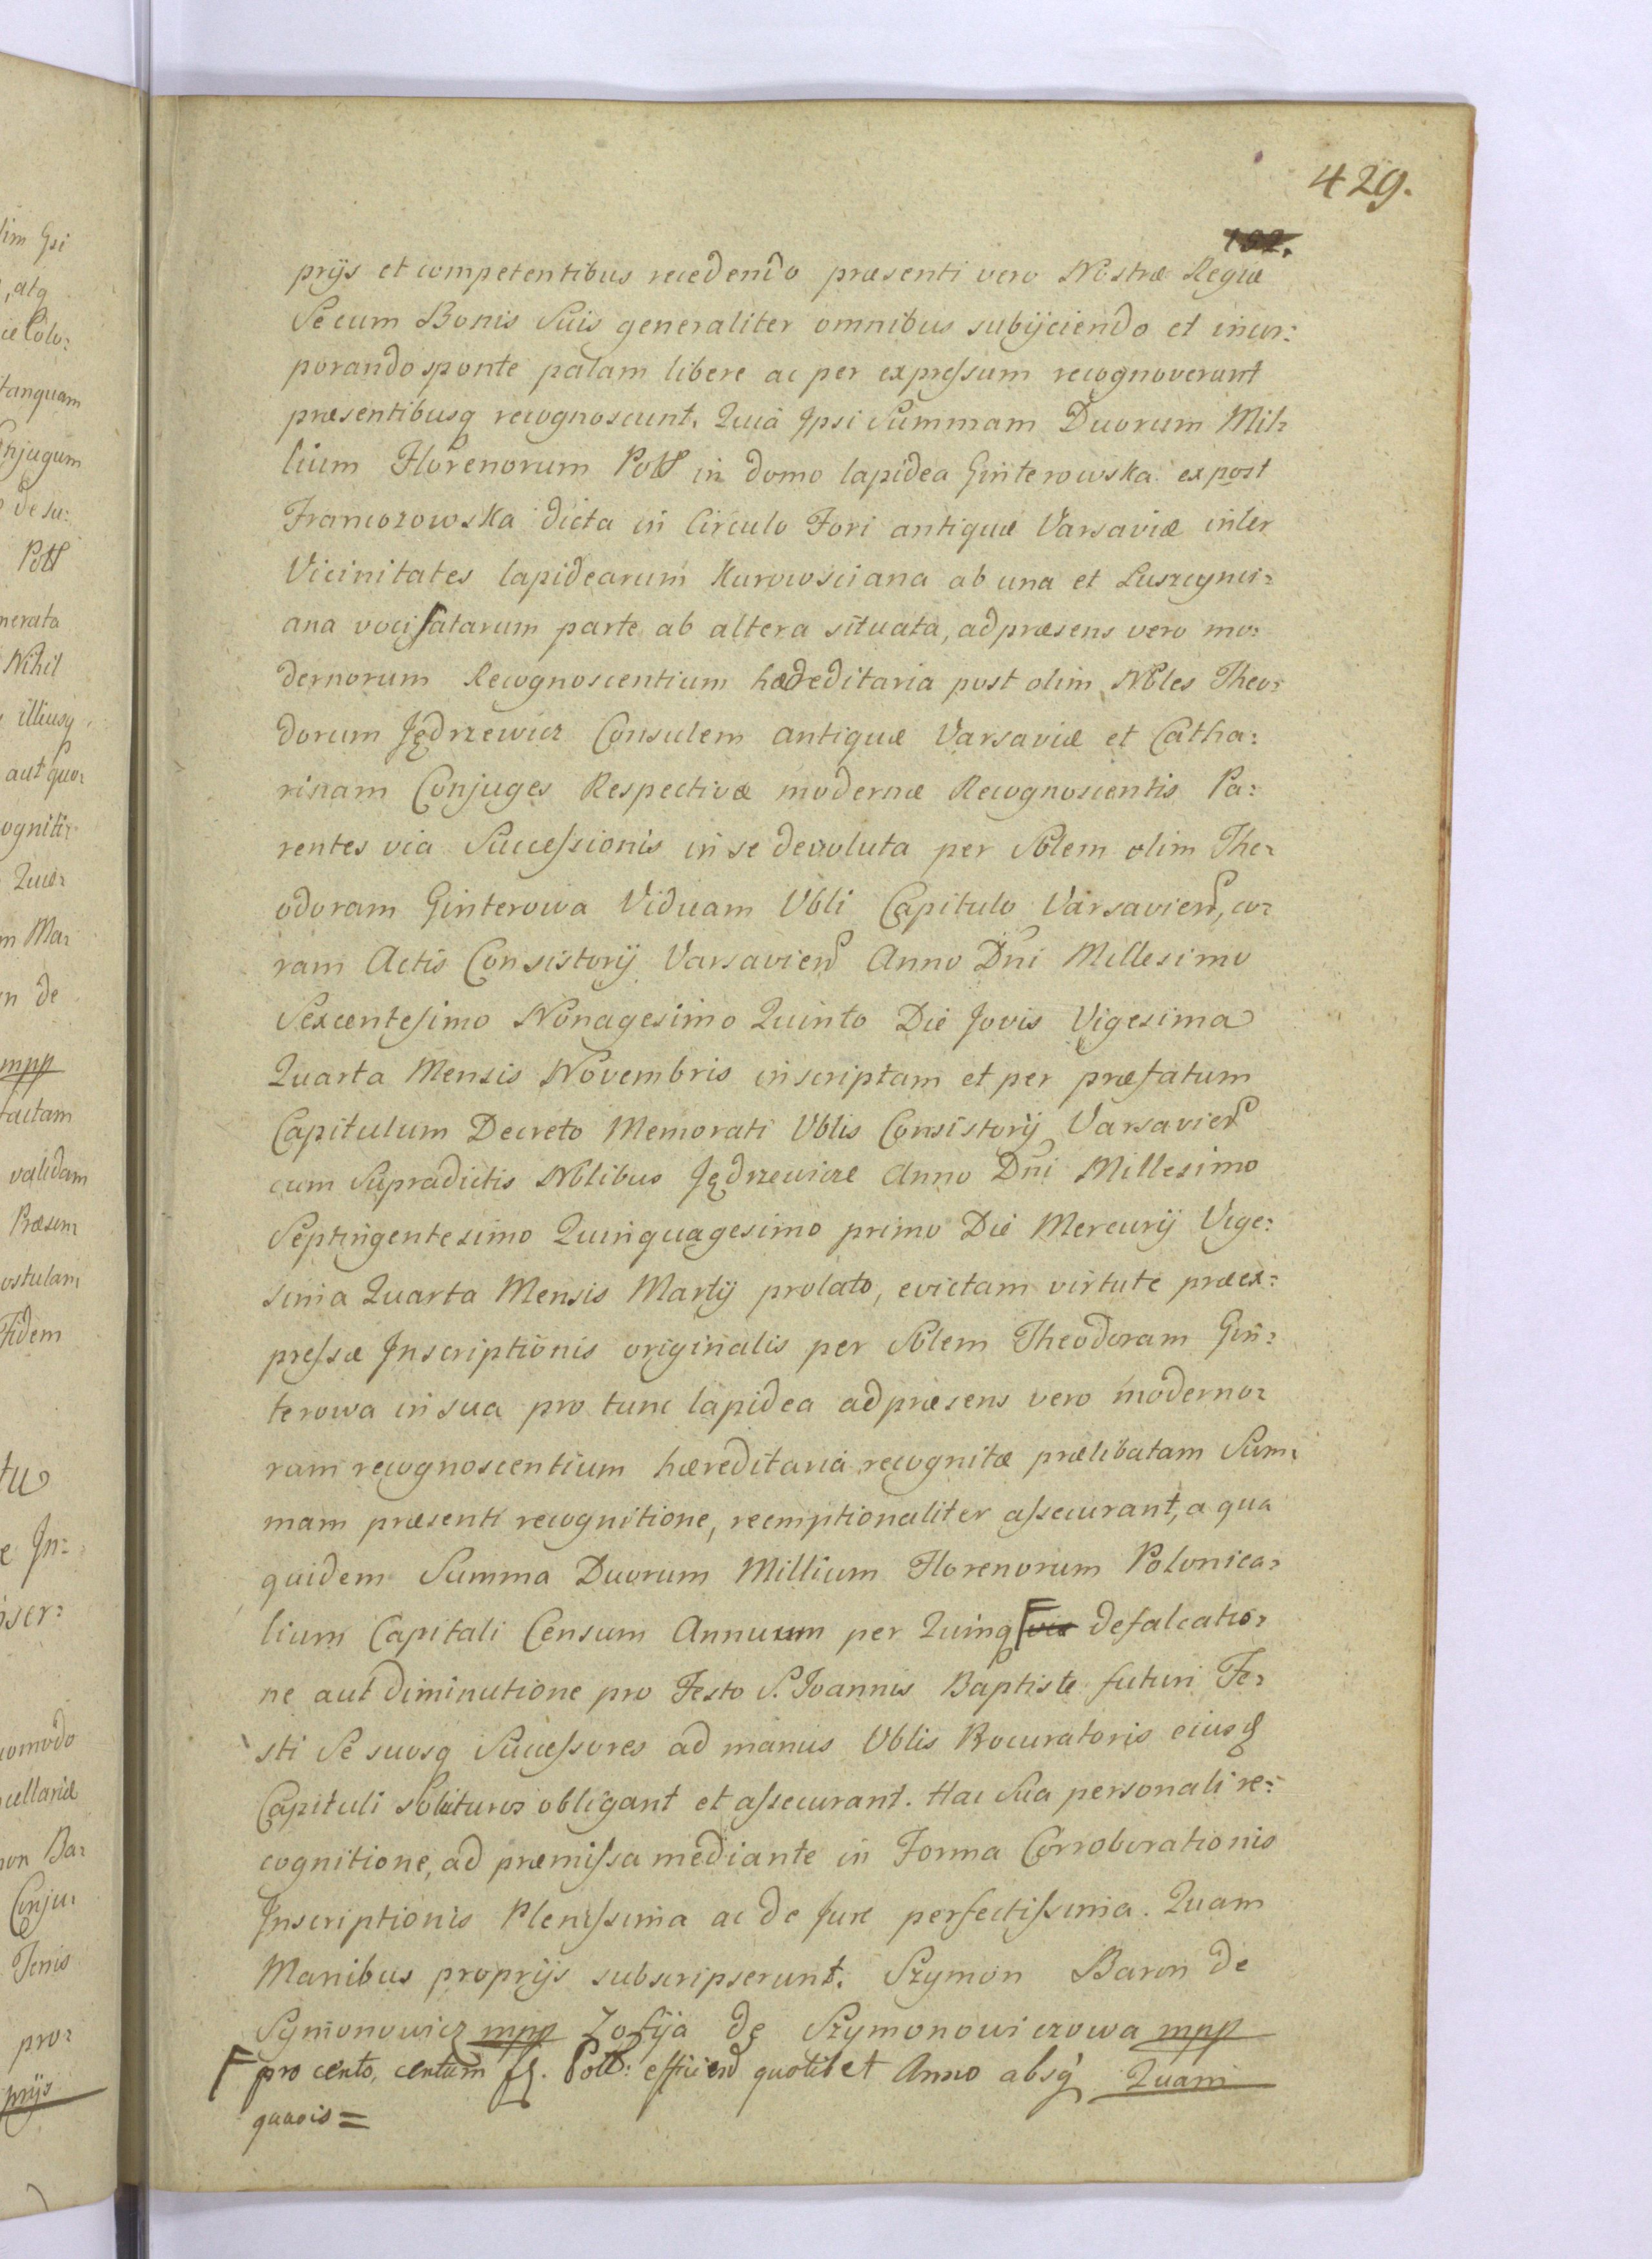 429.
192.
prijs et competentibus recedendo præsenti vero Nostræ Regiæ
Se cum Bonis Suis generaliter omnibus subijciendo et incor:
porando sponte palam libere ac per expressum recognoverunt
præsentibusq recognoscunt. Quia Ipsi Summam Duorum Mil:
lium Florenorum Poll in domo lapidea Ginterowska ex post
Francozowska dicta in Circulo Fori antiquæ Varsaviæ inter
Vicinitates lapidearum Kurowsciana ab una et Luszczynci:
ana vocisatarum parte ab altera situata, ad præsens vero mo:
dernorum Recognoscentium hæreditaria post olim Nbles Theo:
dorum Jędrzewicz Consulem antiquæ Varsaviæ et Catha:
rinam Conjuges Respectivæ modernæ Recognoscentis Pa:
rentes via Successionis in se devoluta per Nblem olim The:
odoram Ginterowa Viduam Vbli Capitulo Varsavien, co:
ram Actis Consistorij Varsavien Anno Dni Millesimo
Sexcentesimo Nonagesimo Quinto Die Jovis Vigesima
Quarta Mensis Novembris inscriptam et per præfatum
Capitulum Decreto Memorati Vblis Consistorij Varsavien
cum Supradictis Nblibus Jędrzewicze Anno Dni Millesimo
Septingentesimo Quinquagesimo primo Die Mercurij Vige:
sima Quarta Mensis Martij prolato, evictam virtute præex:
pressæ Inscriptionis originalis per Nblem Theodoram Gin:
terowa in sua pro tunc lapidea ad præsens vero moderno:
rum recognoscentium hæreditaria recognitæ prælibatam Sum:
mam præsenti recognitione, reemptionaliter assecurant, a qua
quidem Summa Duorum Millium Florenorum Polonica:
lium Capitali Censum Annuum per Quinq defalcatio:
ne aut diminutione pro Festo S. Joannis Baptiste futuri Fe:
sti Se suosq Successores ad manus Vblis Procuratoris eiusd
Capituli soluturos obligant et assecurant. Hac Sua personali re:
cognitione, ad præmissa mediante in Forma Corroborationis
Inscriptionis Plenissima ac de Jure perfectissima. Quam
Manibus proprijs subscripserunt. Szymon Baron de
Symonowicz mpp Zofija de Szymonowiczowa mpp
pro cento, centum fl. Poll: efficien quotibet Anno absq Quam
quavis =